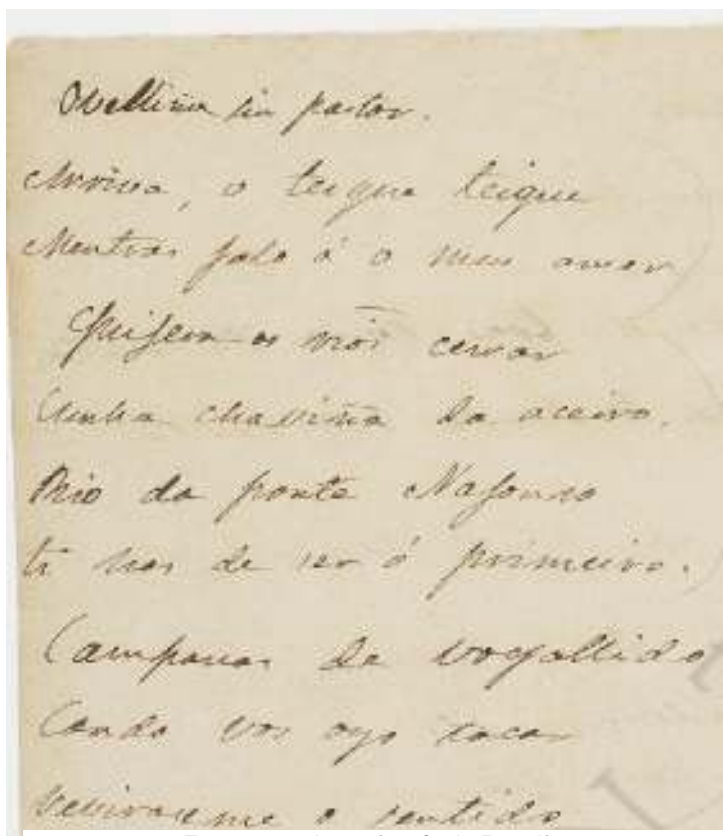 Obelliña sin pastor.
Arriva, o teigue teigue
Mentras falo á o meu amor
Quijera os rios cerrar
Cunha chaviña da aceiro,
Rio da ponte Nafonso
ti has de ser ó primeiro.
Campanas de
Cando vos oyo tocar
o sentido